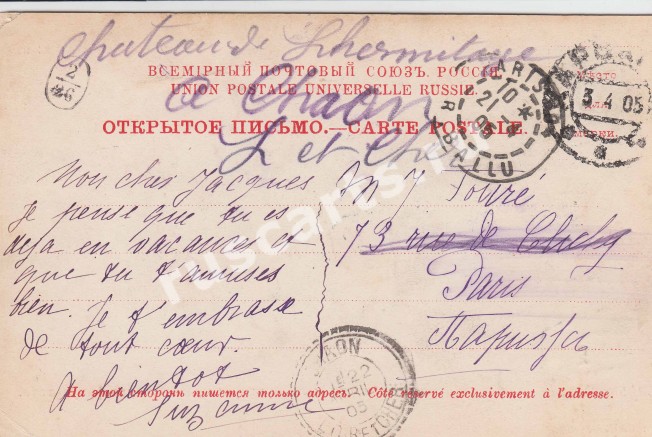 Chateau de L'hermitage
ВСЕМІРНЫЙ ПОЧТОВЫЙ СОЮЗЪ. РОССІЯ.
UNION POSTALE UNIVERSELLE RUSSIE.
à Chaon
ОТКРЫТОЕ ПИСЬМО.—CARTE POSTALE.
L et Cher
PARIS
10
21
05
R. BALLU
3.4.05
Mon cher Jacques
Je pense que tu es
deja en vacances et
que tu t'amuses
bien. Je t'embrasse
de tout cœur.
A bientot
Suzanne
M J Pouré
73 rue de Clichy
Paris
Парижъ
CHAON
22
05
На этой сторонѣ пишется только адресъ. Côté réservé exclusivement à l'adresse.
ruscarts.ru